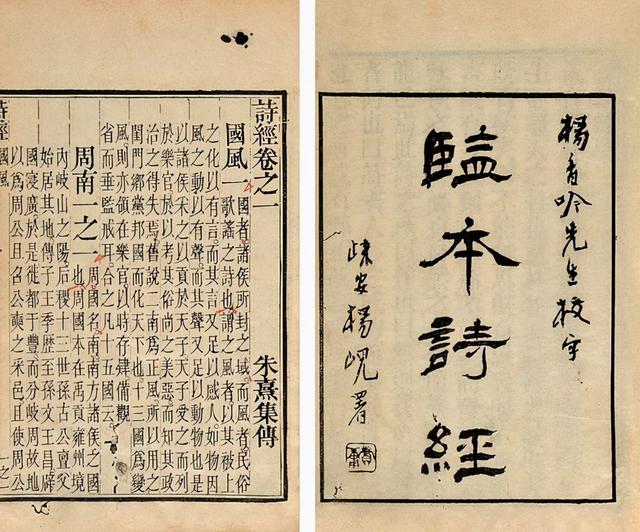 楊香吟先生校字
監本詩經
疎安楊峴署
詩經卷之一
朱熹集傳
國風一
國者諸侯所封之域而風者民俗
歌謠之詩也謂之風者以其被上
之化以有言而其言又足以感人如物因
風之動以有聲而其聲又足以動物也是
以諸侯采之以貢於天子天子受之而列
於樂官於以考其俗尚之美惡而知其政
治之得失焉舊說二南為正風所以用之
閨門鄉黨邦國而化天下也十三國為變
風則亦領在樂官以時存肄備觀
省而垂監戒耳合之凡十五國云
周南一之一
周國名南南方諸侯之國
也周國本在禹貢雍州境
內岐山之陽后稷十三世孫古公亶父
始居其地傳子王季歷至孫文王昌辟
國寖廣於是徙都于豐而分岐周故地
以爲周公旦召公奭之采邑且使周公
詩經
國風